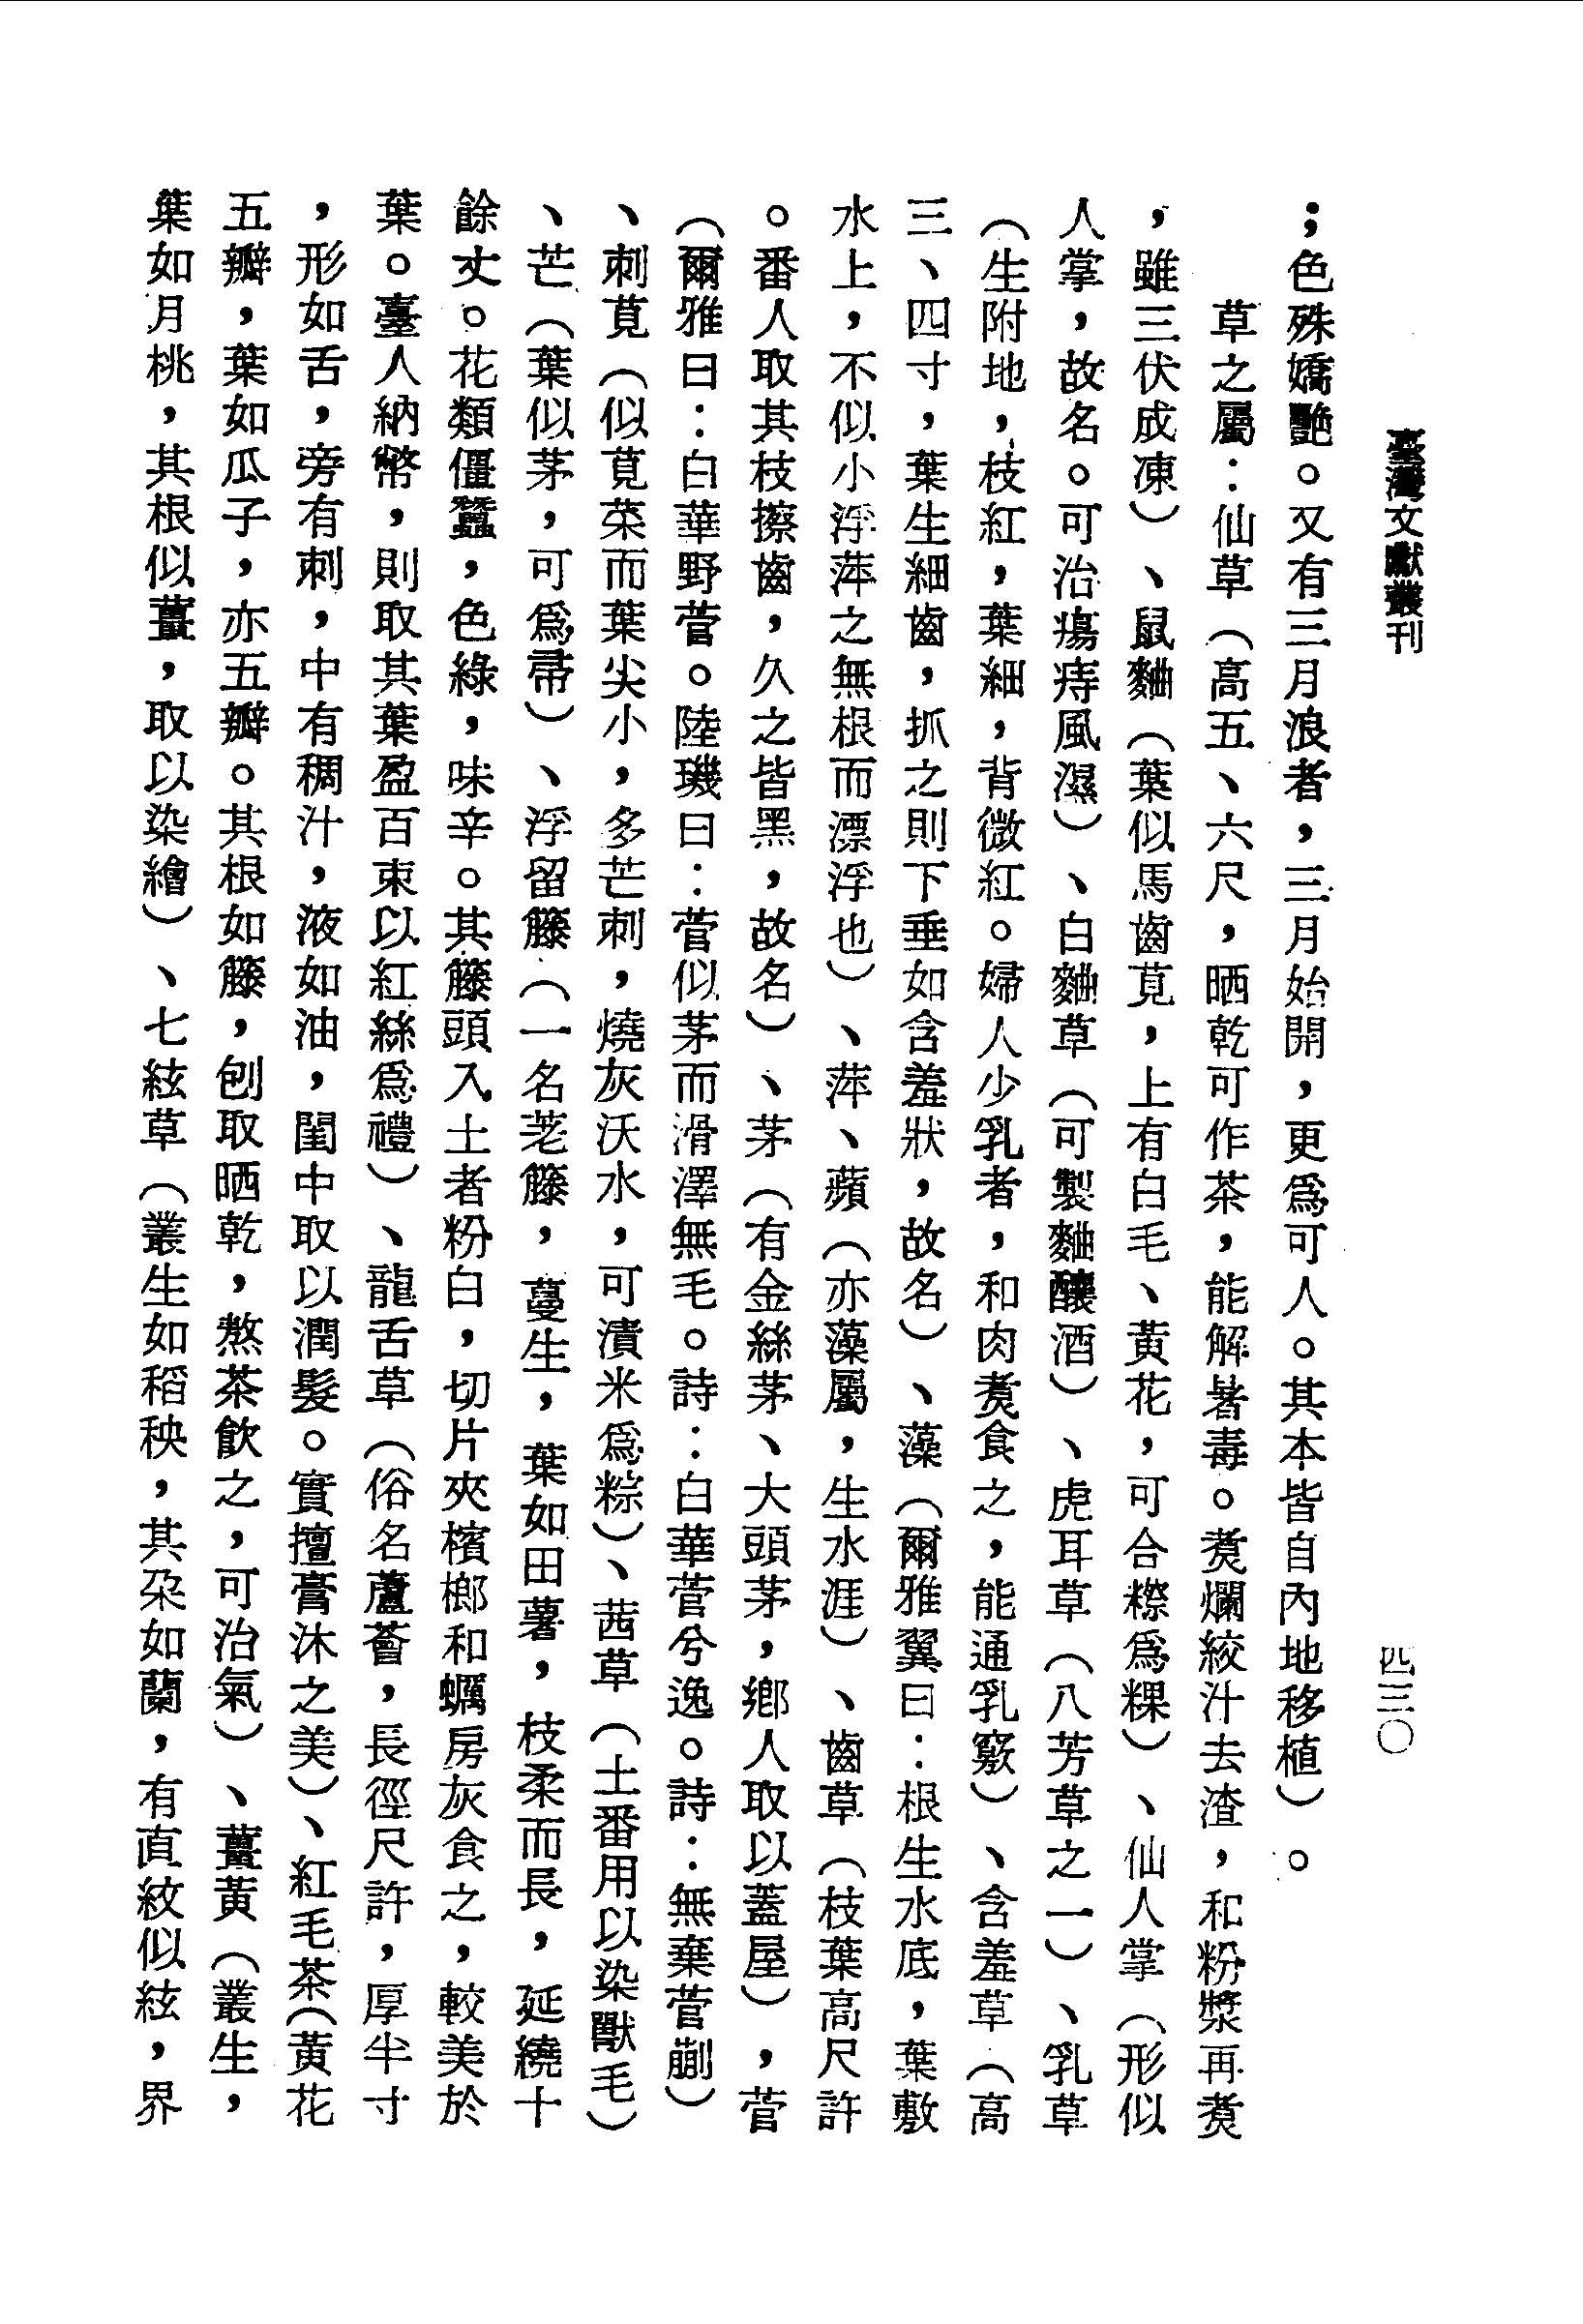 臺灣文獻叢刊
四三〇
；色殊嬌艷。又有三月浪者，三月始開，更爲可人。其本皆自內地移植）。
草之屬：仙草（高五、六尺，晒乾可作茶，能解暑毒。煑爛絞汁去渣，和粉漿再煑
，雖三伏成凍）、鼠麯（葉似馬齒莧，上有白毛、黃花，可合檫爲粿）、仙人掌（形似
人掌，故名。可治瘍痔風濕）、白麯草（可製麯釀酒）、虎耳草（八芳草之一）、乳草
（生附地，枝紅，葉細，背微紅。婦人少乳者，和肉煑食之，能通乳竅）、含羞草（高
三、四寸，葉生細齒，抓之則下垂如含羞狀，故名）、藻（爾雅翼曰：根生水底，葉敷
水上，不似小浮萍之無根而漂浮也）、萍、蘋（亦藻屬，生水涯）、齒草（枝葉高尺許
。番人取其枝擦齒，久之皆黑，故名）、茅（有金絲茅、大頭茅，鄉人取以蓋屋），菅
（爾雅曰：白華野菅。陸璣曰：菅似茅而滑澤無毛。詩：白華菅兮逸。詩：無棄菅蒯）
、刺莧（似莧菜而葉尖小，多芒刺，燒灰沃水，可漬米爲粽）、茜草（土番用以染獸毛）
、芒（葉似茅，可爲帚）、浮留籐（一名荖籐，蔓生，葉如田薯，枝柔而長，延繞十
餘丈。花類僵蠶，色綠，味辛。其籐頭入土者粉白，切片夾檳榔和蠣房灰食之，較美於
葉。臺人納幣，則取其葉盈百束以紅絲爲禮）、龍舌草（俗名蘆薈，長徑尺許，厚半寸
，形如舌，旁有刺，中有稠汁，液如油，閨中取以潤髮。實擅膏沐之美）、紅毛茶（黃花
五瓣，葉如瓜子，亦五瓣。其根如籐，刨取晒乾，熬茶飲之，可治氣）、薑黃（叢生，
葉如月桃，其根似薑，取以染繪）、七絃草（叢生如稻秧，其朶如蘭，有直紋似絃，界